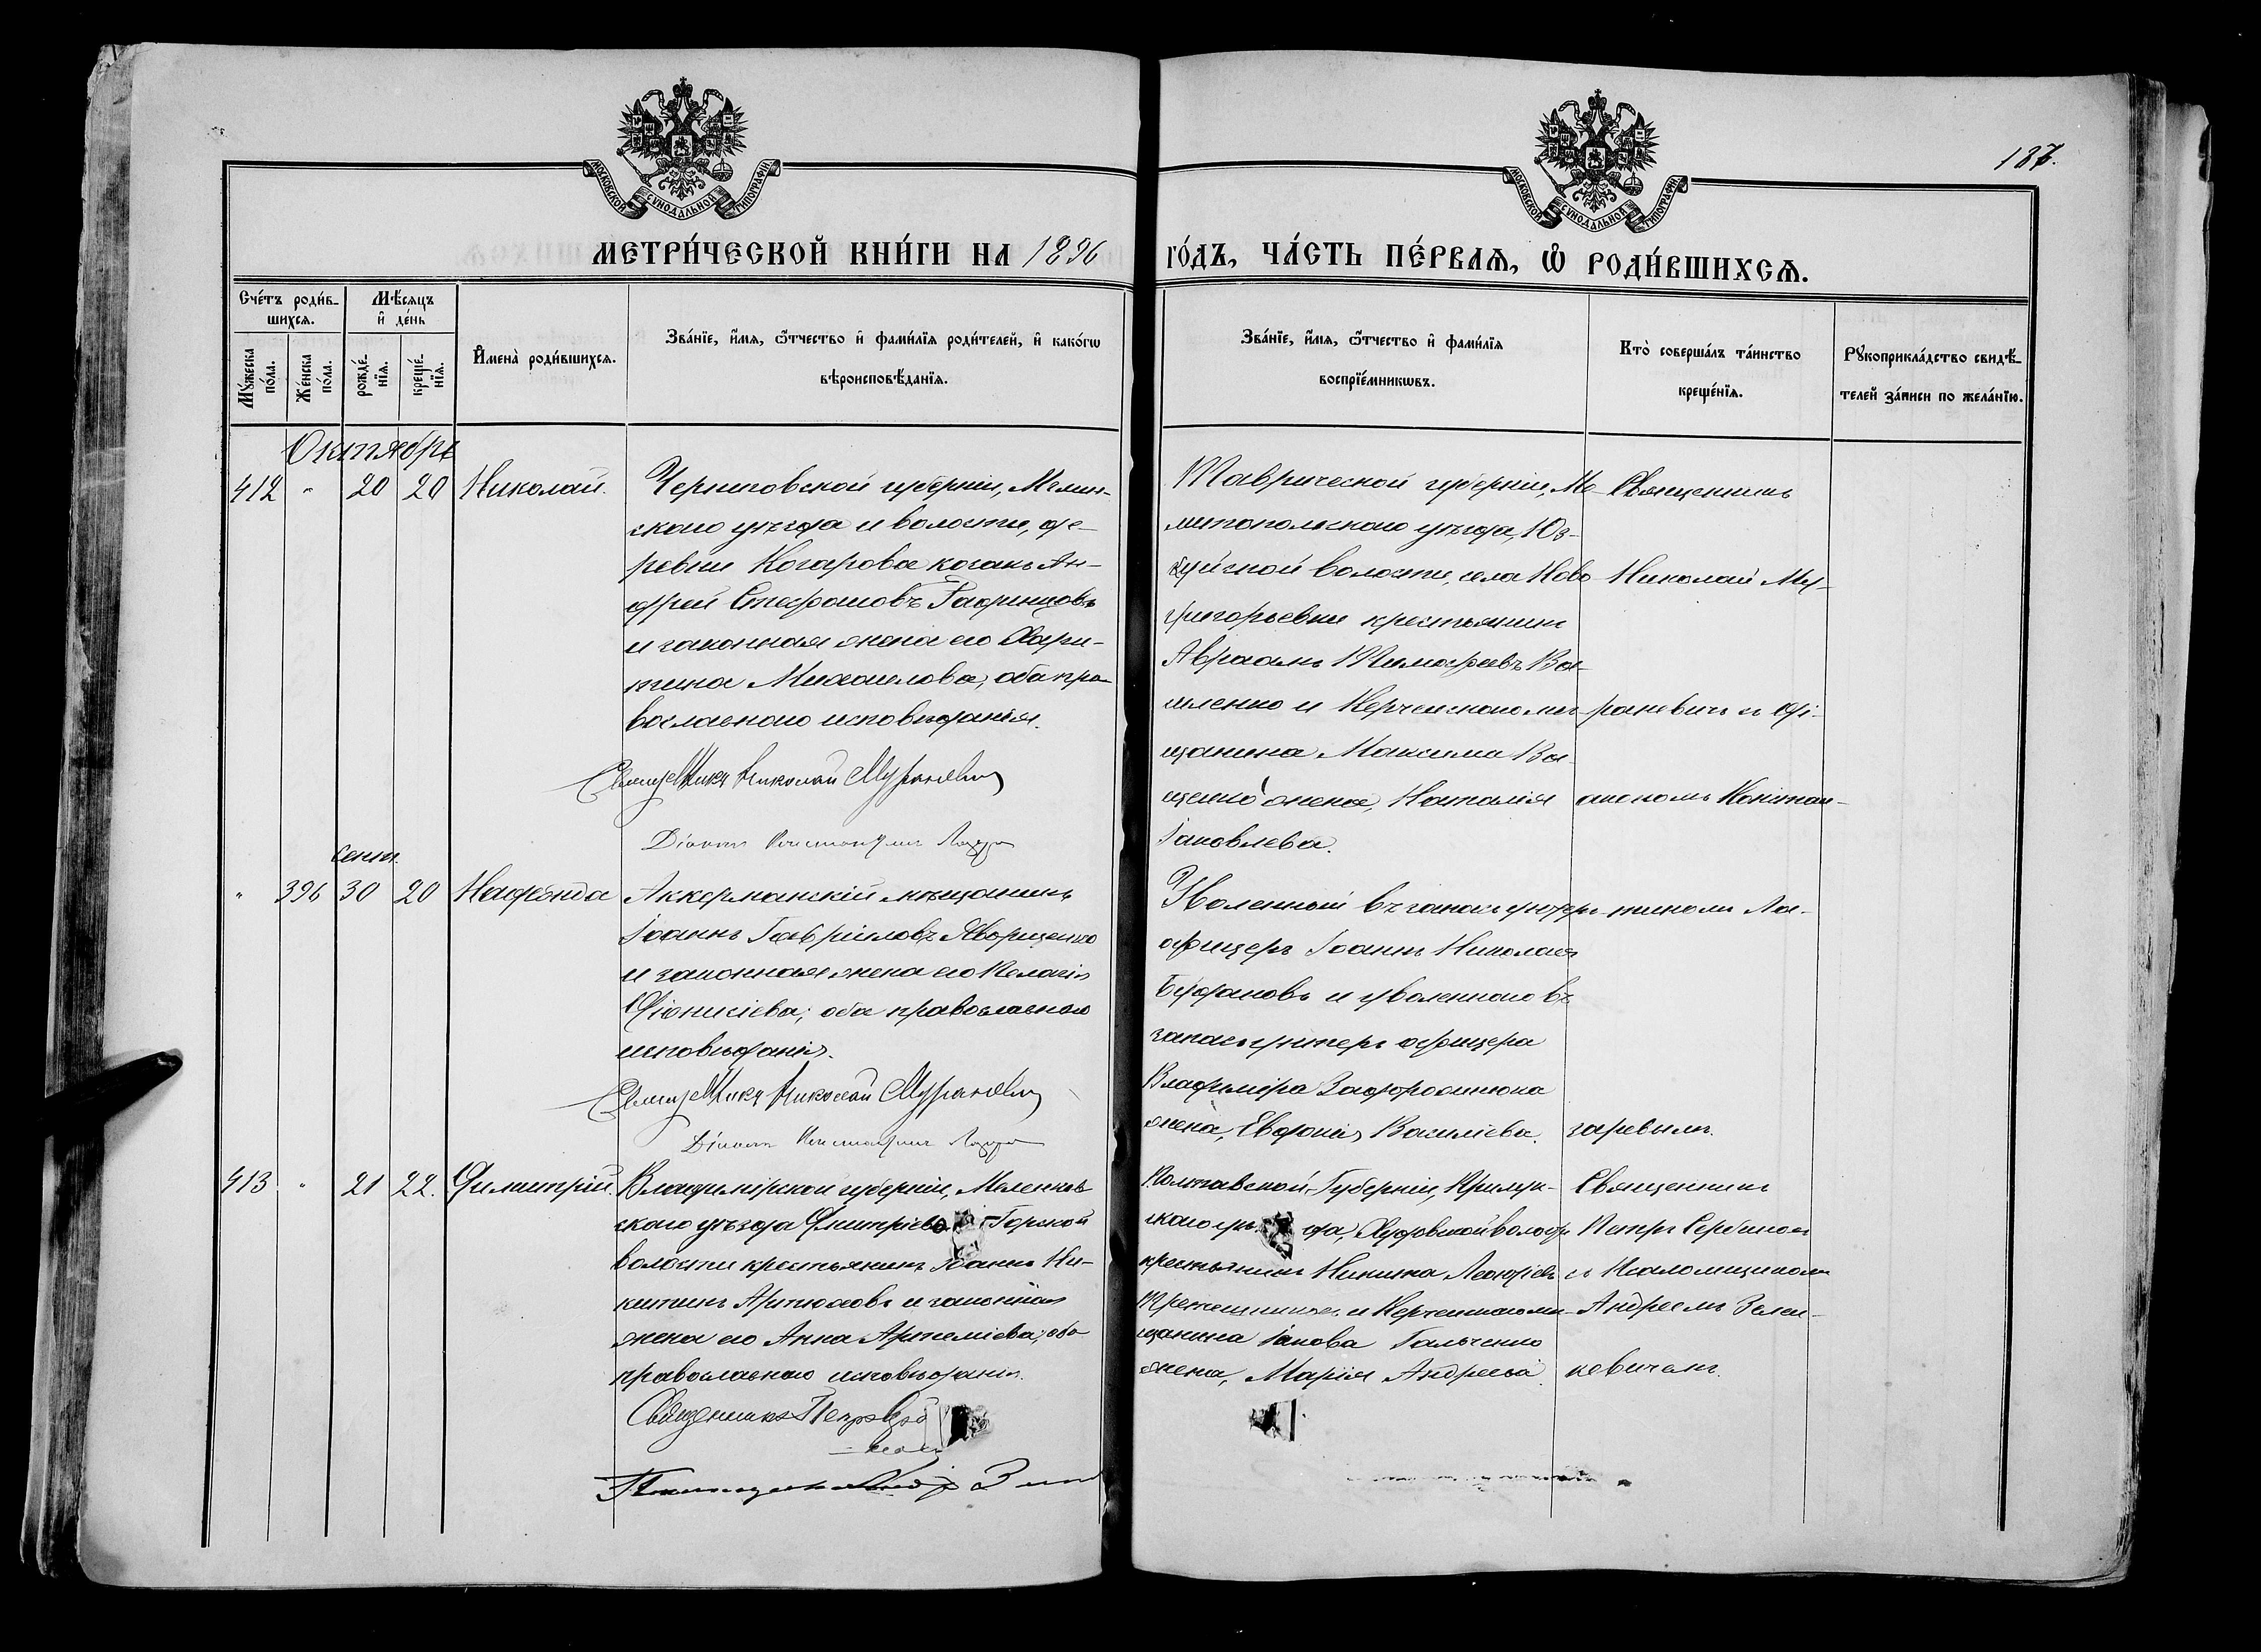 187.
МОСКОВСКОЙ СУНОДАЛЬНОЙ ТИПОГРАФІИ
МОСКОВСКОЙ СУНОДАЛЬНОЙ ТИПОГРАФІИ
МЕТРИ́ЧЕСКОЙ КНИ́ГИ НА 1896
ГО́ДЪ, ЧА́СТЬ ПЕ́РВАѦ, Ѡ҆ РОДИ́ВШИХСѦ.
Сче́тъ роди́в-
шихсѧ.
Мѣ́сѧцъ
и҆ де́нь
Мꙋ́жеска
по́ла.
Же́нска
по́ла.
рожде́-
нїѧ.
креще́-
нїѧ.
И҆мена̀ роди́вшихсѧ.
Зва́нїе, и҆́мѧ, ѻ҆́тчество и҆ фами́лїѧ роди́телей, и҆ како́гѡ
вѣроисповѣ́данїѧ.
Зва́нїе, и҆́мѧ, ѻ҆́тчество и҆ фами́лїѧ
воспрїе́мникѡвъ.
Кто̀ соверша́лъ та́инство
креще́нїѧ.
Рꙋкоприкла́дство свидѣ́-
телей за́писи по жела́нїю.
Октябрь
412 " 20 20 Николай.
Черниговской губерніи, Мглин-
скаго уѣзда и волости, де-
ревни Когарова козакъ Ан-
дрей Стефановъ
и законная жена его Хари-
тина Михаилова; оба пра-
вославнаго исповѣданія.
Священникъ Николай Мураневичъ
Діаконъ Константинъ
Таврической губерніи, Ме-
литопольскаго уѣзда, Юз-
куйской волости, села Ново
григорьевки крестьянинъ
Авраамъ Тимофеевъ Ва-
щенко и Керченскаго мѣ-
щанина Максима Ва-
щенко жена, Наталія
Іаковлева.
Священникъ
Николай Му-
раневичъ съ ді-
акономъ Констан-
тиномъ Ла-
заревымъ.
сент.
" 396 30 20 Надежда
Аккерманскій мѣщанинъ
Іоаннъ Гавріиловъ Яворщенко
и законная жена его Пелагія
Діонисіева; оба православнаго
исповѣданія.
Священникъ Николай Мураневичъ
Діаконъ Константинъ
Уволенный въ запасъ унтеръ
офицеръ Іоаннъ Николаевъ
и уволеннаго въ
запасъ унтеръ офицера
Владиміра
жена, Евдокія Василіева.
413 " 21 22. Димитрій.
Владимірской губерніи, Меленков-
скаго уѣзда Дмитріево - Горской
волости крестьянинъ Іоаннъ Ни-
китинъ Артюховъ и законная
жена его Анна Артеміева; оба
православнаго исповѣданія.
Священникъ Петръ
Полтавской Губерніи, Прилук-
скаго уѣзда,
крестьянинъ Никита
и Керченскаго мѣ-
щанина Іакова Гальченко
жена, Марія Андреева.
Священникъ
Петръ Сербиновъ
съ Псаломщикомъ
Андреемъ Зелен-
кевичемъ.